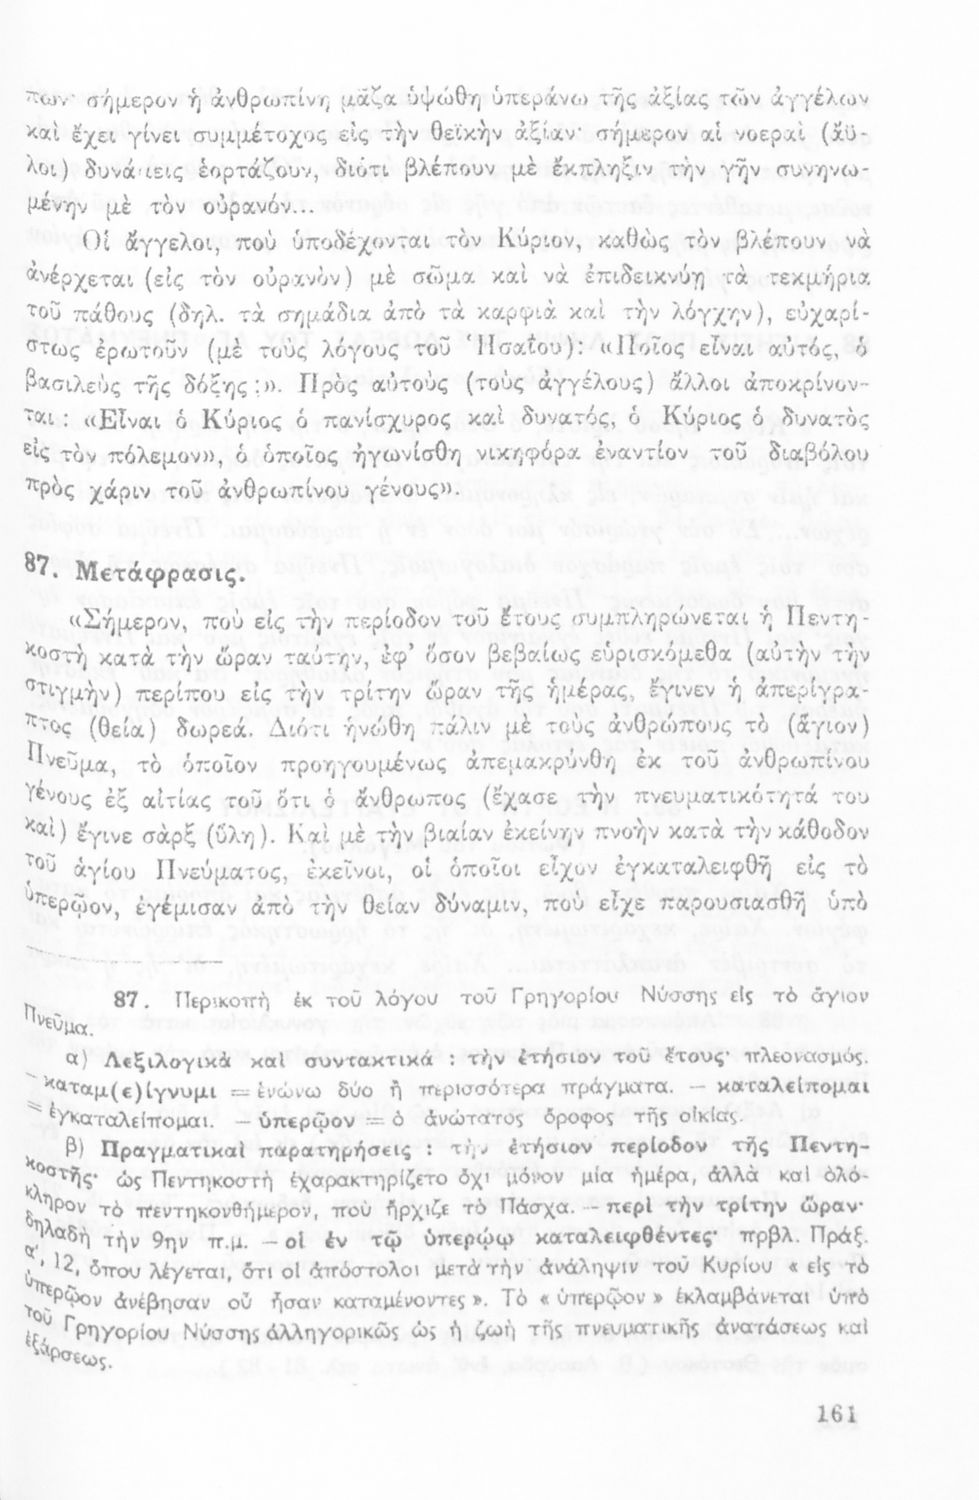 πων· σήμερον ἡ ἀνθρωπίνη μᾶζα ὑψώθη ὑπεράνω τῆς ἀξίας τῶν ἀγγέλων
καὶ ἔχει γίνει συμμέτοχος εἰς τὴν θεϊκὴν ἀξίαν· σήμερον αἱ νοεραὶ (ἄϋ-
λοι) δυνάμεις ἑορτάζουν, διότι βλέπουν μὲ ἔκπληξιν τὴν γῆν συνηνω-
μένην μὲ τὸν οὐρανόν...
Οἱ ἄγγελοι, ποὺ ὑποδέχονται τὸν Κύριον, καθὼς τὸν βλέπουν νὰ
ἀνέρχεται (εἰς τὸν οὐρανὸν) μὲ σῶμα καὶ νὰ ἐπιδεικνύῃ τὰ τεκμήρια
τοῦ πάθους (δηλ. τὰ σημάδια ἀπὸ τὰ καρφιὰ καὶ τὴν λόγχην), εὐχαρί-
στως ἐρωτοῦν (μὲ τοὺς λόγους τοῦ Ἡσαΐου): «Ποῖος εἶναι αὐτός, ὁ
βασιλεὺς τῆς δόξης;». Πρὸς αὐτοὺς (τοὺς ἀγγέλους) ἄλλοι ἀποκρίνον-
ται: «Εἶναι ὁ Κύριος ὁ πανίσχυρος καὶ δυνατός, ὁ Κύριος ὁ δυνατὸς
εἰς τὸν πόλεμον», ὁ ὁποῖος ἠγωνίσθη νικηφόρα ἐναντίον τοῦ διαβόλου
πρὸς χάριν τοῦ ἀνθρωπίνου γένους».
87. Μετάφρασις.
«Σήμερον, ποὺ εἰς τὴν περίοδον τοῦ ἔτους συμπληρώνεται ἡ Πεντη-
κοστὴ κατὰ τὴν ὥραν ταύτην, ἐφ’ ὅσον βεβαίως εὑρισκόμεθα (αὐτὴν τὴν
στιγμὴν) περίπου εἰς τὴν τρίτην ὥραν τῆς ἡμέρας, ἔγινεν ἡ ἀπερίγρα-
πτος (θεία) δωρεά. Διότι ἡνώθη πάλιν μὲ τοὺς ἀνθρώπους τὸ (ἅγιον)
Πνεῦμα, τὸ ὁποῖον προηγουμένως ἀπεμακρύνθη ἐκ τοῦ ἀνθρωπίνου
γένους ἐξ αἰτίας τοῦ ὅτι ὁ ἄνθρωπος (ἔχασε τὴν πνευματικότητά του
καὶ) ἔγινε σὰρξ (ὕλη). Καὶ μὲ τὴν βιαίαν ἐκείνην πνοὴν κατὰ τὴν κάθοδον
τοῦ ἁγίου Πνεύματος, ἐκεῖνοι, οἱ ὁποῖοι εἶχον ἐγκαταλειφθῆ εἰς τὸ
ὑπερῷον, ἐγέμισαν ἀπὸ τὴν θείαν δύναμιν, ποὺ εἶχε παρουσιασθῆ ὑπὸ
87. Περικοπὴ ἐκ τοῦ λόγου τοῦ Γρηγορίου Νύσσης εἰς τὸ ἅγιον
Πνεῦμα.
α) Λεξιλογικὰ καὶ συντακτικά : τὴν ἐτήσιον τοῦ ἔτους· πλεονασμός.
– καταμ(ε)ίγνυμι = ἑνώνω δύο ἢ περισσότερα πράγματα. — καταλείπομαι
= ἐγκαταλείπομαι. — ὑπερῷον = ὁ ἀνώτατος ὄροφος τῆς οἰκίας.
β) Πραγματικαὶ παρατηρήσεις : τὴν ἐτήσιον περίοδον τῆς Πεντη-
κοστῆς· ὡς Πεντηκοστὴ ἐχαρακτηρίζετο ὄχι μόνον μία ἡμέρα, ἀλλὰ καὶ ὁλό-
κληρον τὸ πεντηκονθήμερον, ποὺ ἤρχιζε τὸ Πάσχα. — περὶ τὴν τρίτην ὥραν·
δηλαδὴ τὴν 9ην π.μ. — οἱ ἐν τῷ ὑπερῴῳ καταλειφθέντες· πρβλ. Πράξ.
α', 12, ὅπου λέγεται, ὅτι οἱ ἀπόστολοι μετὰ τὴν ἀνάληψιν τοῦ Κυρίου « εἰς τὸ
ὑπερῷον ἀνέβησαν οὗ ἦσαν καταμένοντες ». Τὸ « ὑπερῷον » ἐκλαμβάνεται ὑπὸ
τοῦ Γρηγορίου Νύσσης ἀλληγορικῶς ὡς ἡ ζωὴ τῆς πνευματικῆς ἀνατάσεως καὶ
ἐξάρσεως.
161